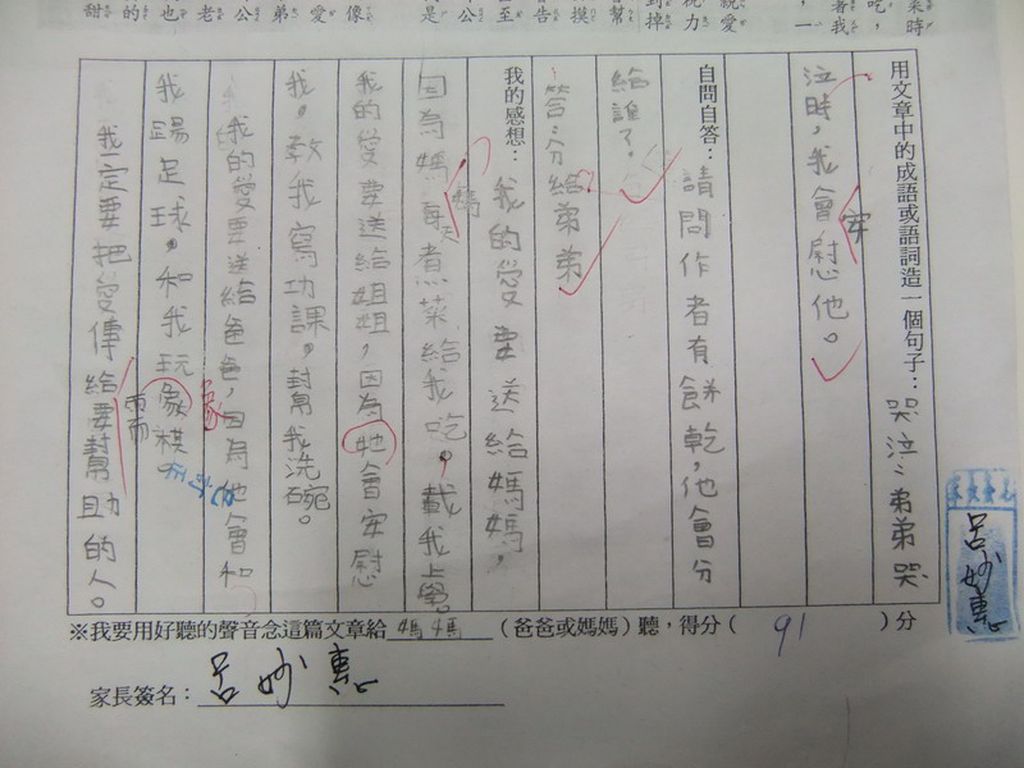 用文章中的成語或語詞造一個句子：哭泣：弟弟哭
泣時，我會慰他。
安
自問自答：請問作者有餅乾，他會分
給誰了。
答：分給弟弟
我的感想：我的愛要送給媽媽，
因為媽每天煮菜給我吃。載我上學。
媽
我的愛要送給姐姐，因為她會安慰
我，教我寫功課，幫我洗碗。
我的愛要送給爸爸，因為他會和
象
我踢足球，和我玩象棋。
我一定要把愛傳給要幫助的人。
※我要用好聽的聲音念這篇文章給媽媽（爸爸或媽媽）聽，得分（91）分
家長簽名：呂妙惠
呂妙惠